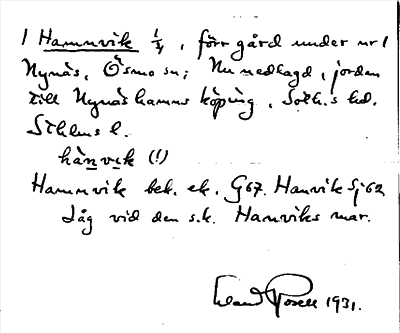 1 Hamnvik 1/4, förr gård under nr 1
Nynäs, Ösmo sn; Nu nedlagd, jorden
till Nynäshamns köping, Soth.s hd.
Sthlms l.
hànvik (!)
Hamnvik bek. ek. G67. Hanvik Sj 62
Låg vid den s.k. Hamnviks mar.
1931.